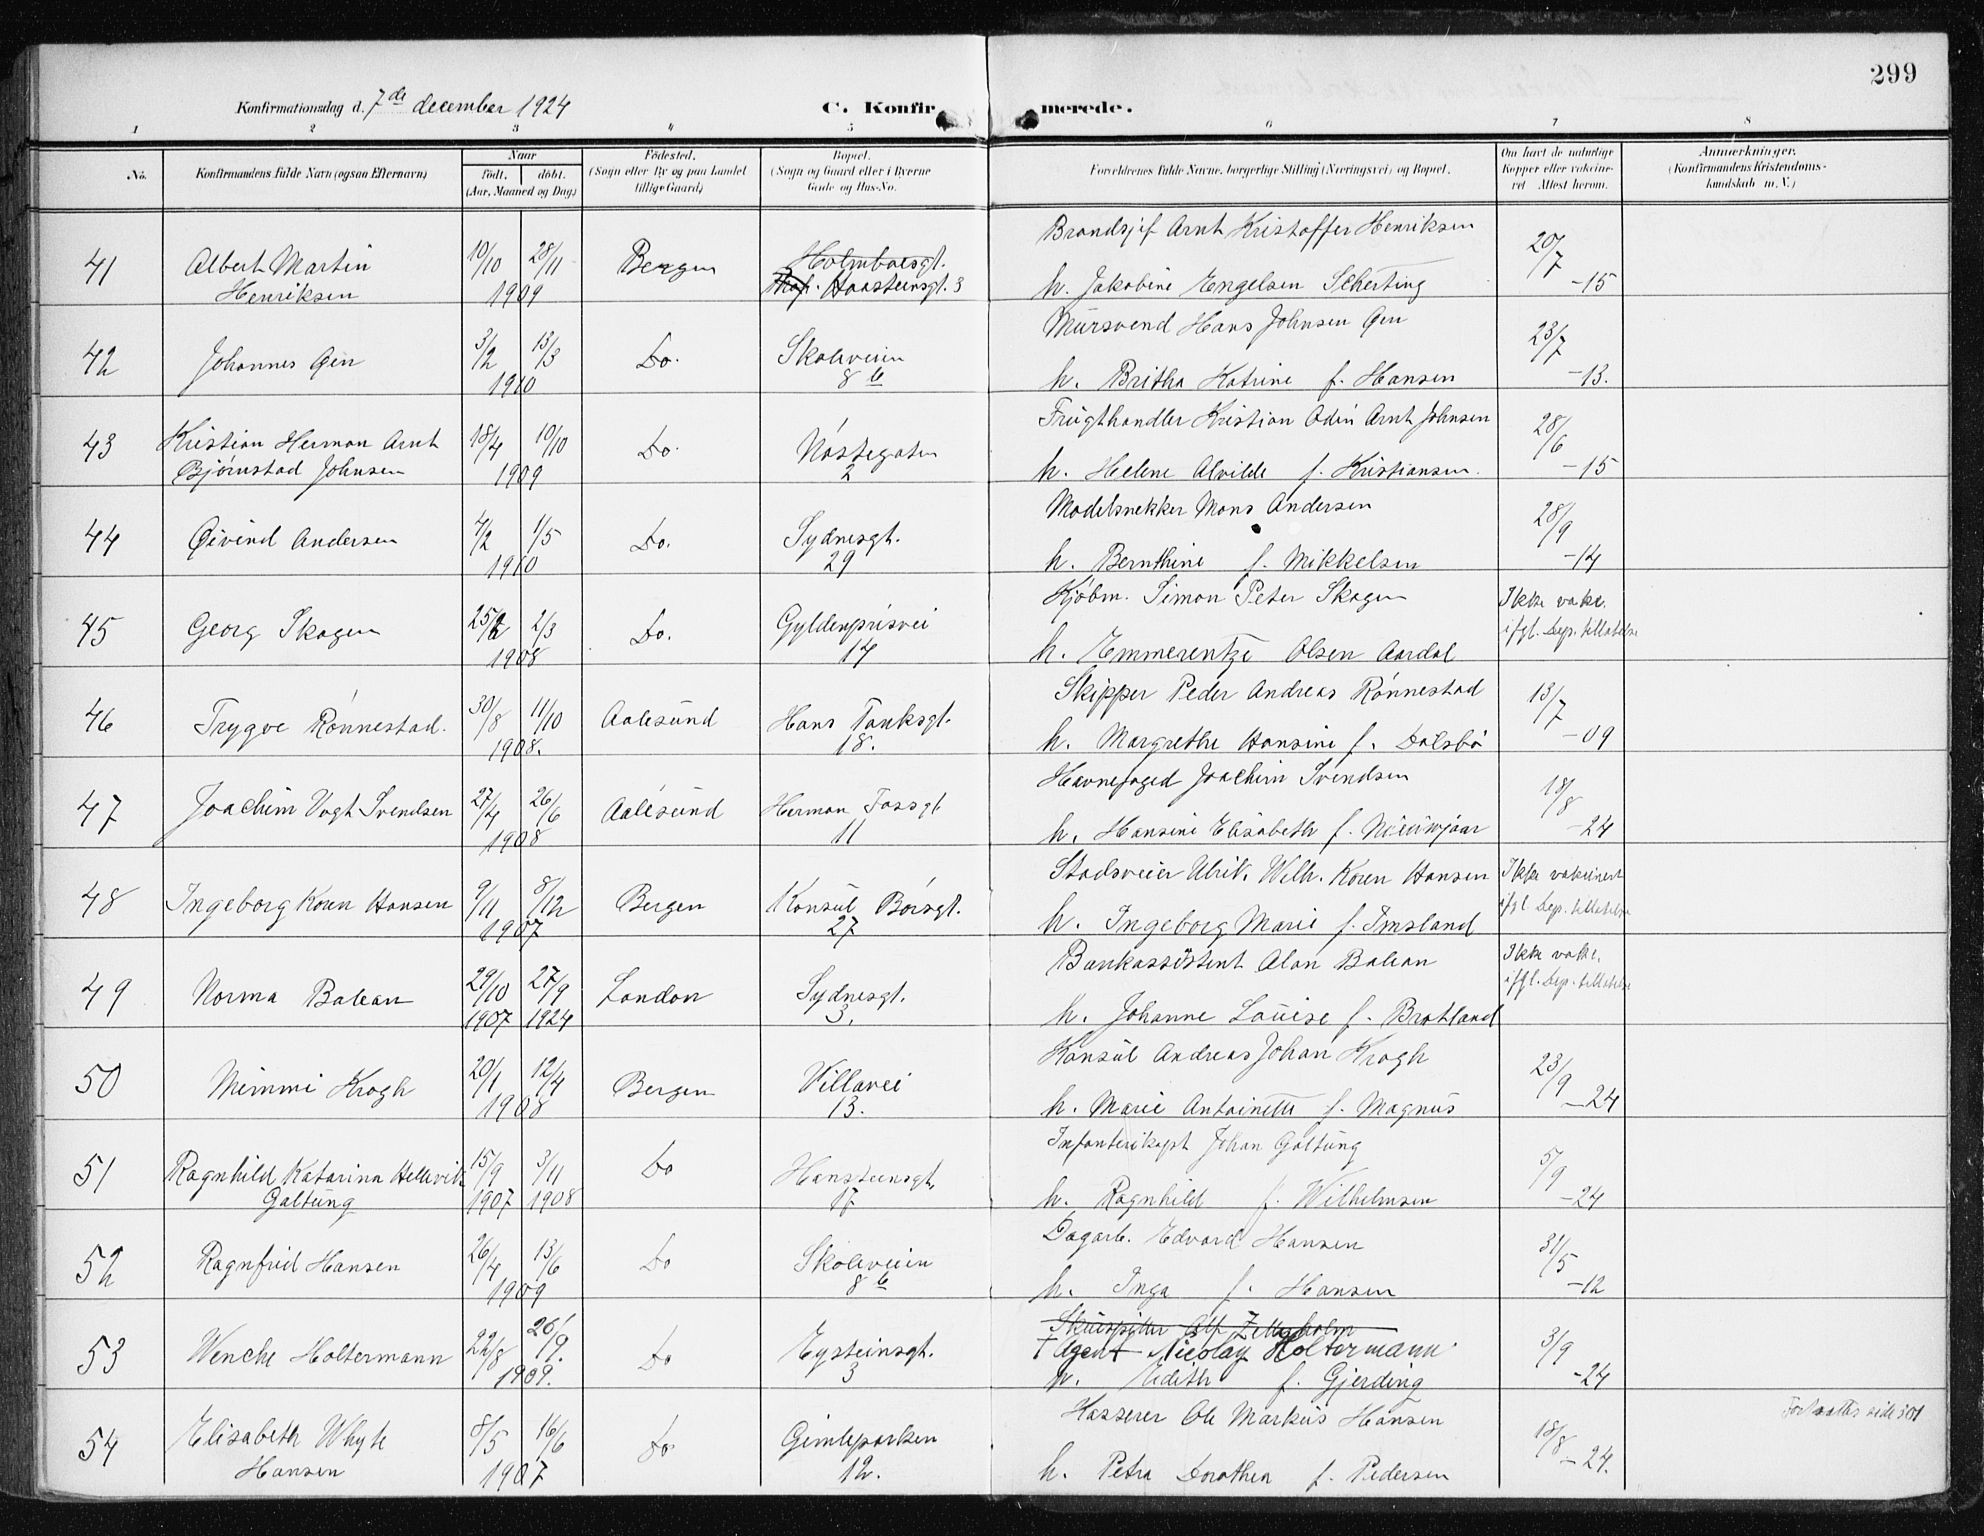 299
Konfirmationsdag d. 7de december 1924 C. Konfir merede.
1 2 3 4 5 6 7 8
No. Konfirmandens fulde Navn (ogsaa Efternavn) Naar født. døbt. (Aar, Maaned og Dag) Fødested. (Sogn eller By og paa Landet tillige Gaard) Bopæl. (Sogn og Gaard eller i Byerne Gade og Hus-No. Forældrenes fulde Navne, borgerlige Stilling (Næringsvei) og Bopæl. Om havt de naturlige Kopper eller vakcineret. Attest herom. Anmærkninger. (Konfirmandens Kristendomskundskab m. V.)
Brandsjef Arnt Kristoffer Henriksen
41 Albert Martin 19/10 28/11 Bergen Holmboesgt. 20/7
Henriksen 1909 Haasteinsgt. 3 h. Jakobine Engelsen Scherting -15
Mursvend Hans Johnsen Øen
42 Johannes Øen 3/2 13/3 Do. Skoleveien 23/7
1910 8 b h. Britha Katrine f. Hansen -13.
Frugthandler Kristian Odin Arnt Johnsen
43 Kristian Herman Arnt 18/4 10/10 Do. Nøstegaten 28/6
Bjørnstad Johnsen 1909 2 h. Helene Alvilde f. Kristiansen. -15
Modelsnekker Mons Andersen
44 Øivind Andersen 4/2 1/5 Do. Sydnesgt. 28/9
1910 29 h. Bernthine f. Mikkelsen -14
Kjøbm. Simon Peter Skagen Ikke vakc.
45 Georg Skagen 25/2 2/3 Do. Gyldenprisvei ifgl. Dep. tilladelse
1908 14 h. Emmerentze Olsen Aardal
Skipper Peder Andreas Rønnestad
46 Trygve Rønnestad. 30/8 11/10 Aalesund Hans Tanksgt. 13/7
1908. 18. h. Margrethe Hansine f. Dalsbø -09
Havnefoged Joachim Svendsen
47 Joachim Vogt Svendsen 27/4 26/6 Aalesund Herman Fossgt 18/8
1908 11 h. Hansine Elisabeth f. Nieuwjaar -24
Stadsveier Ulrik Wilh. Koren Hansen Ikke vakcinert
48 Ingeborg Koren Hansen 9/11 8/12 Bergen Konsul Børsgt. ifgl Dep. tilladelse
1907 27 h. Ingeborg Marie f. Imsland
Bankassistent Alan Balean Ikke vakc.
49 Norma Balean 29/10 27/9 London Sydnesgt. ifgl. Dep. tilladelse
1907 1924 3. h. Johanne Louise f. Brotland
Konsul Andreas Johan Krogh
50 Mimmi Krogh 20/1 12/4 Bergen Villavei 23/9
1908 13. h. Marie Antoinette f. Magnus -24
Infanterikapt Johan Galtung
51 Ragnhild Katarina Hellevik 15/9 3/11 Do Hansteensgt. 5/9
Galtung 1907 1908 17 h. Ragnhild f. Wilhelmsen -24
Dagarb. Edvard Hansen
52 Ragnfrid Hansen 26/4 13/6 Do Skoleveien 31/5
1909 8 b h. Inga f. Hansen -12
Skuespiller Alf
53 Wenche Holtermann 22/8 26/9. Do Eysteinsgt. † Agent Nicolay Holtermann 3/9
1909. 3 h. Edith f. Gjerding -24
Kasserer Ole Markus Hansen Fortsættes side 301
54 Elisabeth Whyte 8/5 16/6 Do. Gimleparken 18/8
Hansen 1907 12. h. Petra Dorothea f. Pedersen -24.